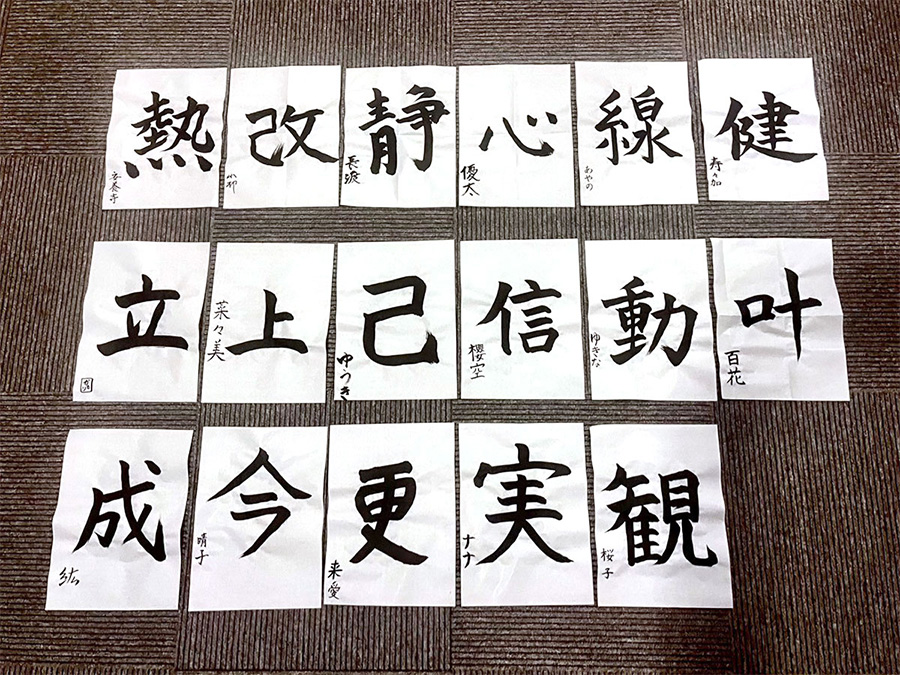 熱
安養寺
改
小柳
静
長渡
心
優太
線
あやの
健
寿々加
立
上
菜々美
己
ゆづき
信
櫻空
動
ゆきな
叶
百花
成
紘
今
晴子
更
来愛
実
ナナ
観
桜子